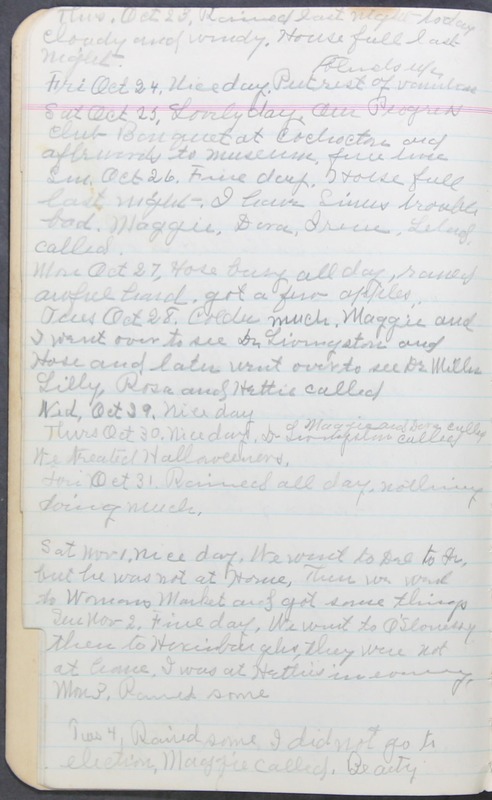 Thurs. Oct 23, Rained last night today
cloudy and windy. House full last
night.
blinds up,
Fri Oct 24, Nice day. Put rest of
Sat Oct 25, Lovely day. Our Progress
Club Banquet at Coshocton and
afterwards to museum, fine time
Sun Oct 26. Fine day. House full
last night. I have Sinus trouble
bad. Maggie, Dora, Irene,
called.
Mon Oct 27, Hose busy all day, rained
awful hard. got a few apples,
Tues Oct 28, Colder much. Maggie and
I went over to see Dr Livingston and
Hose and later went over to see Dr Miller
Lilly, Rosa and Hettie called
Wed, Oct 29, Nice day
Maggie and Dora called
Thurs Oct 30, Nice day, Dr Livingston called
We treated Halloweeners.
Fri Oct 31. Rained all day, nothing
doing much.
Sat Nov 1, Nice day. We went to to Dr,
but he was not at Home, Then we went
to Womans Market and got some things
Sun Nov 2. Fine day, We went to
then to they were not
at home, I was at Hetties in evening,
Mon 3, Rained some
Tues 4, Rained some I did not go to
election, Maggie called. Beauty